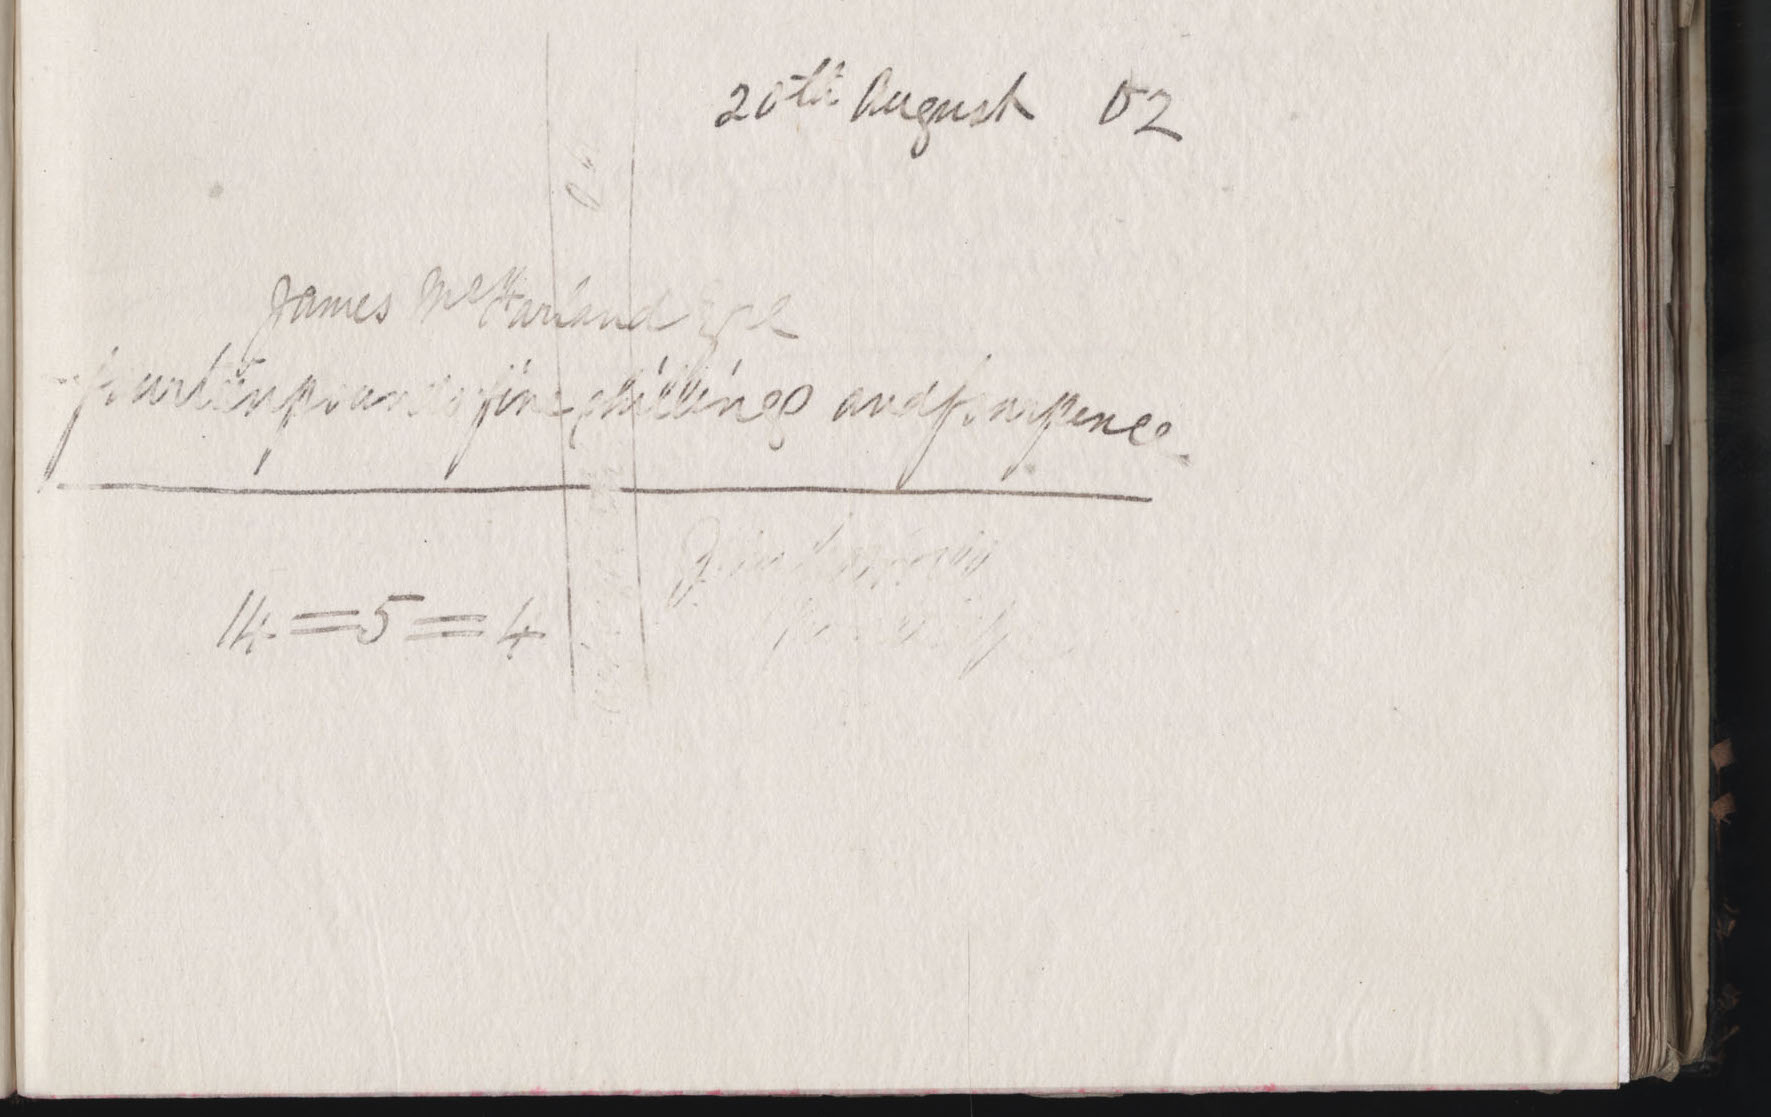 20th August 02
James McFarland Esqe
fourteen pounds five shillings and fourpence
14=5=4